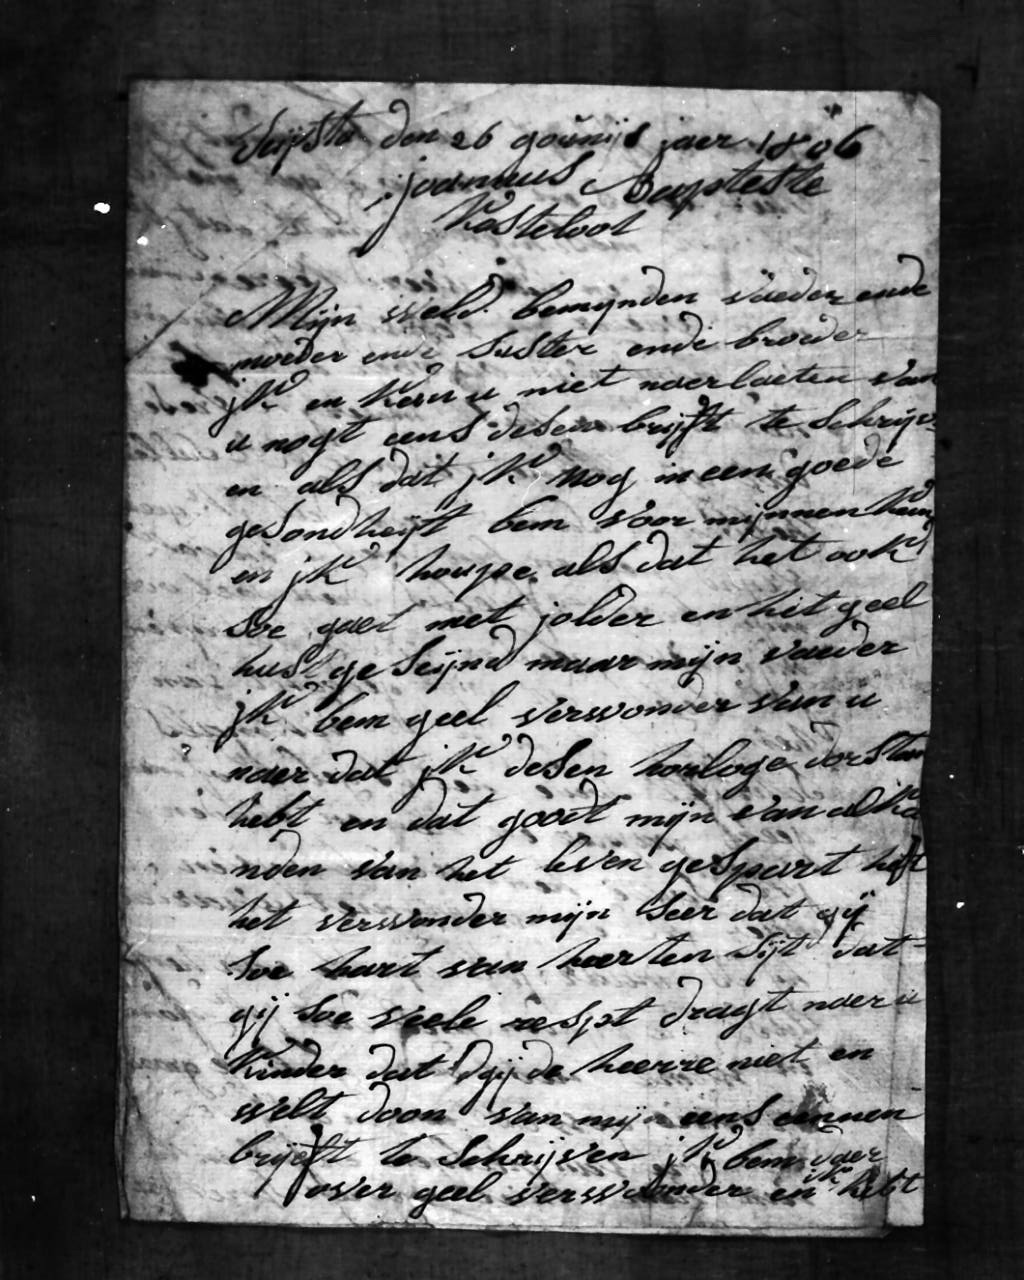 den 26 gounij jaer 1806
joannus Baptiste
Kasteloot
Mijn weld bemynden vaeder ende
moeder ende suster ende broeder
jk en kan u niet naerlaeten van
u nogt eens desen brijft te schrijv
en als dat jk nog in een goede
gesondheijt bem voor mijnnen
en jk houpe als dat het ook
soe gaet met jolder en hit geel
hus ge seijnd maar mijn vaeder
jk bem geel verwonder van u
naer dat jk desen horloge dorstan
hebt en dat goodt mijn van
nden van het leven gespart heft
het verwonder mijn seer dat gij
soe hart van herten sijt dat
gij soe veele respt dragt naer u
kinder dat dgij de heerre niet en
welt doon van mijn eens eennen
brijeft te schrijven jk bem daer
over geel verwonder en jk hebt